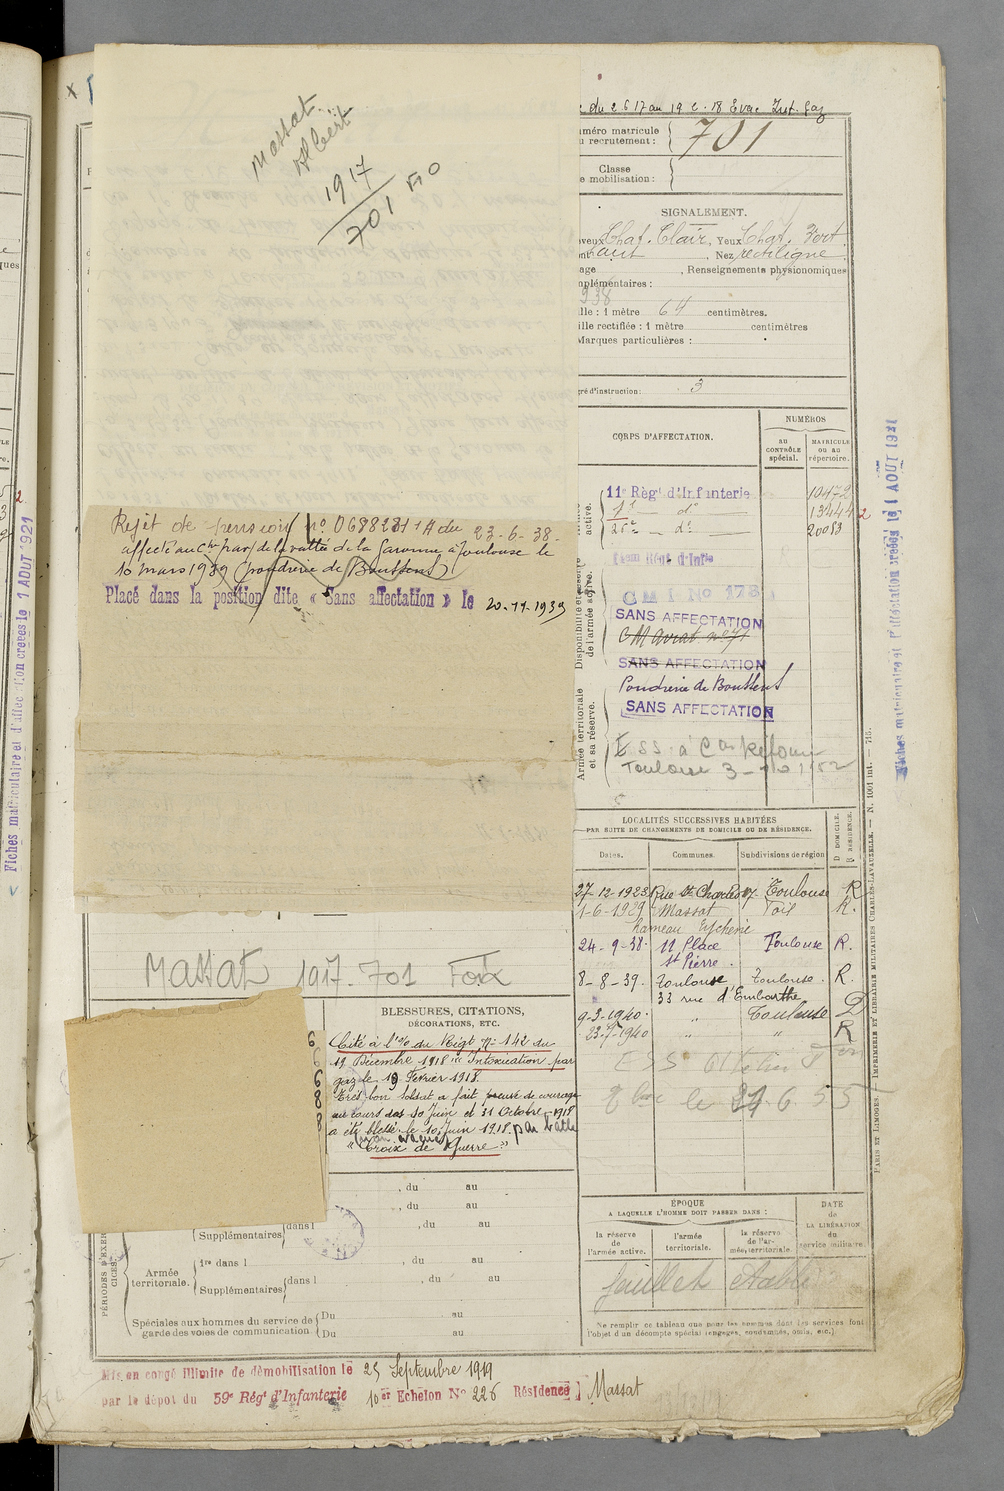 Massat
Albert
1917
701
du 2 6 17 au 19 2 - 18 Evac Int. Gaz
numéro matricule
recrutement :
701
Classe
de mobilisation :
SIGNALEMENT.
Chat. Clair, Yeux Chat. Vert
haut , Nez rectiligne
, Renseignements physionomiques
complémentaires :
938
Taille : 1 mètre 64 centimètres.
Taille rectifiée : 1 mètre centimètres
Marques particulières :
Degré d'instruction : 3
CORPS D'AFFECTATION.
NUMÉROS
au
CONTRÔLE
spécial.
MATRICULE
OU AU
répertoire.
11e Régt d'Infanterie 10472
do 13444 2
do 20083
Disponibilité et réserve
de l'armée active.
CMI No 173
SANS AFFECTATION
SANS AFFECTATION
Poudrerie de Boussens
SANS AFFECTATION
Armée territoriale
et sa réserve.
Toulouse
Rejet de pension no 0688281 1A du 23-6-38-
affecté au Cne trav de la vallée de la Garonne à Toulouse le
10 mars 1939 (poudrerie de Boussens)
Placé dans la position dite « Sans affectation » le 20-11-1939
LOCALITÉS SUCCESSIVES HABITÉES
PAR SUITE DE CHANGEMENTS DE DOMICILE OU DE RÉSIDENCE.
Dates. Communes. Subdivisions de région
D DOMICILE.
R RÉSIDENCE.
27-12-1923 Rue St Charles 17 Toulouse R
1-6-1929 Massat Foix R.
hameau
24-9-38- 11 Place Toulouse R.
St Pierre.
8-8-39. Toulouse Toulouse. R.
33 rue d'Embarthe
9-3-1940. " Toulouse D
23-7-1940 " " R
ESS
le 21 6 55
Massat 1917-701 Foix
BLESSURES, CITATIONS,
DÉCORATIONS, ETC.
Cité à l'o/ du Régt No 142 du
19 Décembre 1918 "Intoxication par
gaz le 19 Février 1918.
Très bon soldat a fait preuve de courage
au cours des 10 Juin et 31 Octobre 1918
a été blessé le 10 Juin 1918. par balle
"Croix de Guerre"
, du au
, du au
Supplémentaires dans l , du au
PÉRIODES D'EXERCICES.
Armée
territoriale.
1re dans l , du au
Supplémentaires dans l , du au
Spéciales aux hommes du service de
garde des voies de communication
Du au
Du au
ÉPOQUE
A LAQUELLE L'HOMME DOIT PASSER DANS :
la réserve
de
l'armée active.
l'armée
territoriale.
la réserve
de l'ar-
mée territoriale.
DATE
de
LA LIBÉRATION
du
service militaire.
feuillet
Ne remplir ce tableau que pour les hommes dont les services font
l'objet d'un décompte spécial (engagés, condamnés, omis, etc.)
Mis en congé illimité de démobilisation le 25 Septembre 1919
par le dépôt du 59e Régt d'Infanterie 10er Echelon No 226 Résidence Massat
Fiches matriculaire et d'affectation créées le 1 AOUT 1921
Fiches matriculaire et d'affectation créées le 1 AOUT 1921
PARIS ET LIMOGES. — IMPRIMERIE ET LIBRAIRIE MILITAIRES CHARLES-LAVAUZELLE. — N. 1001 int. — 715.